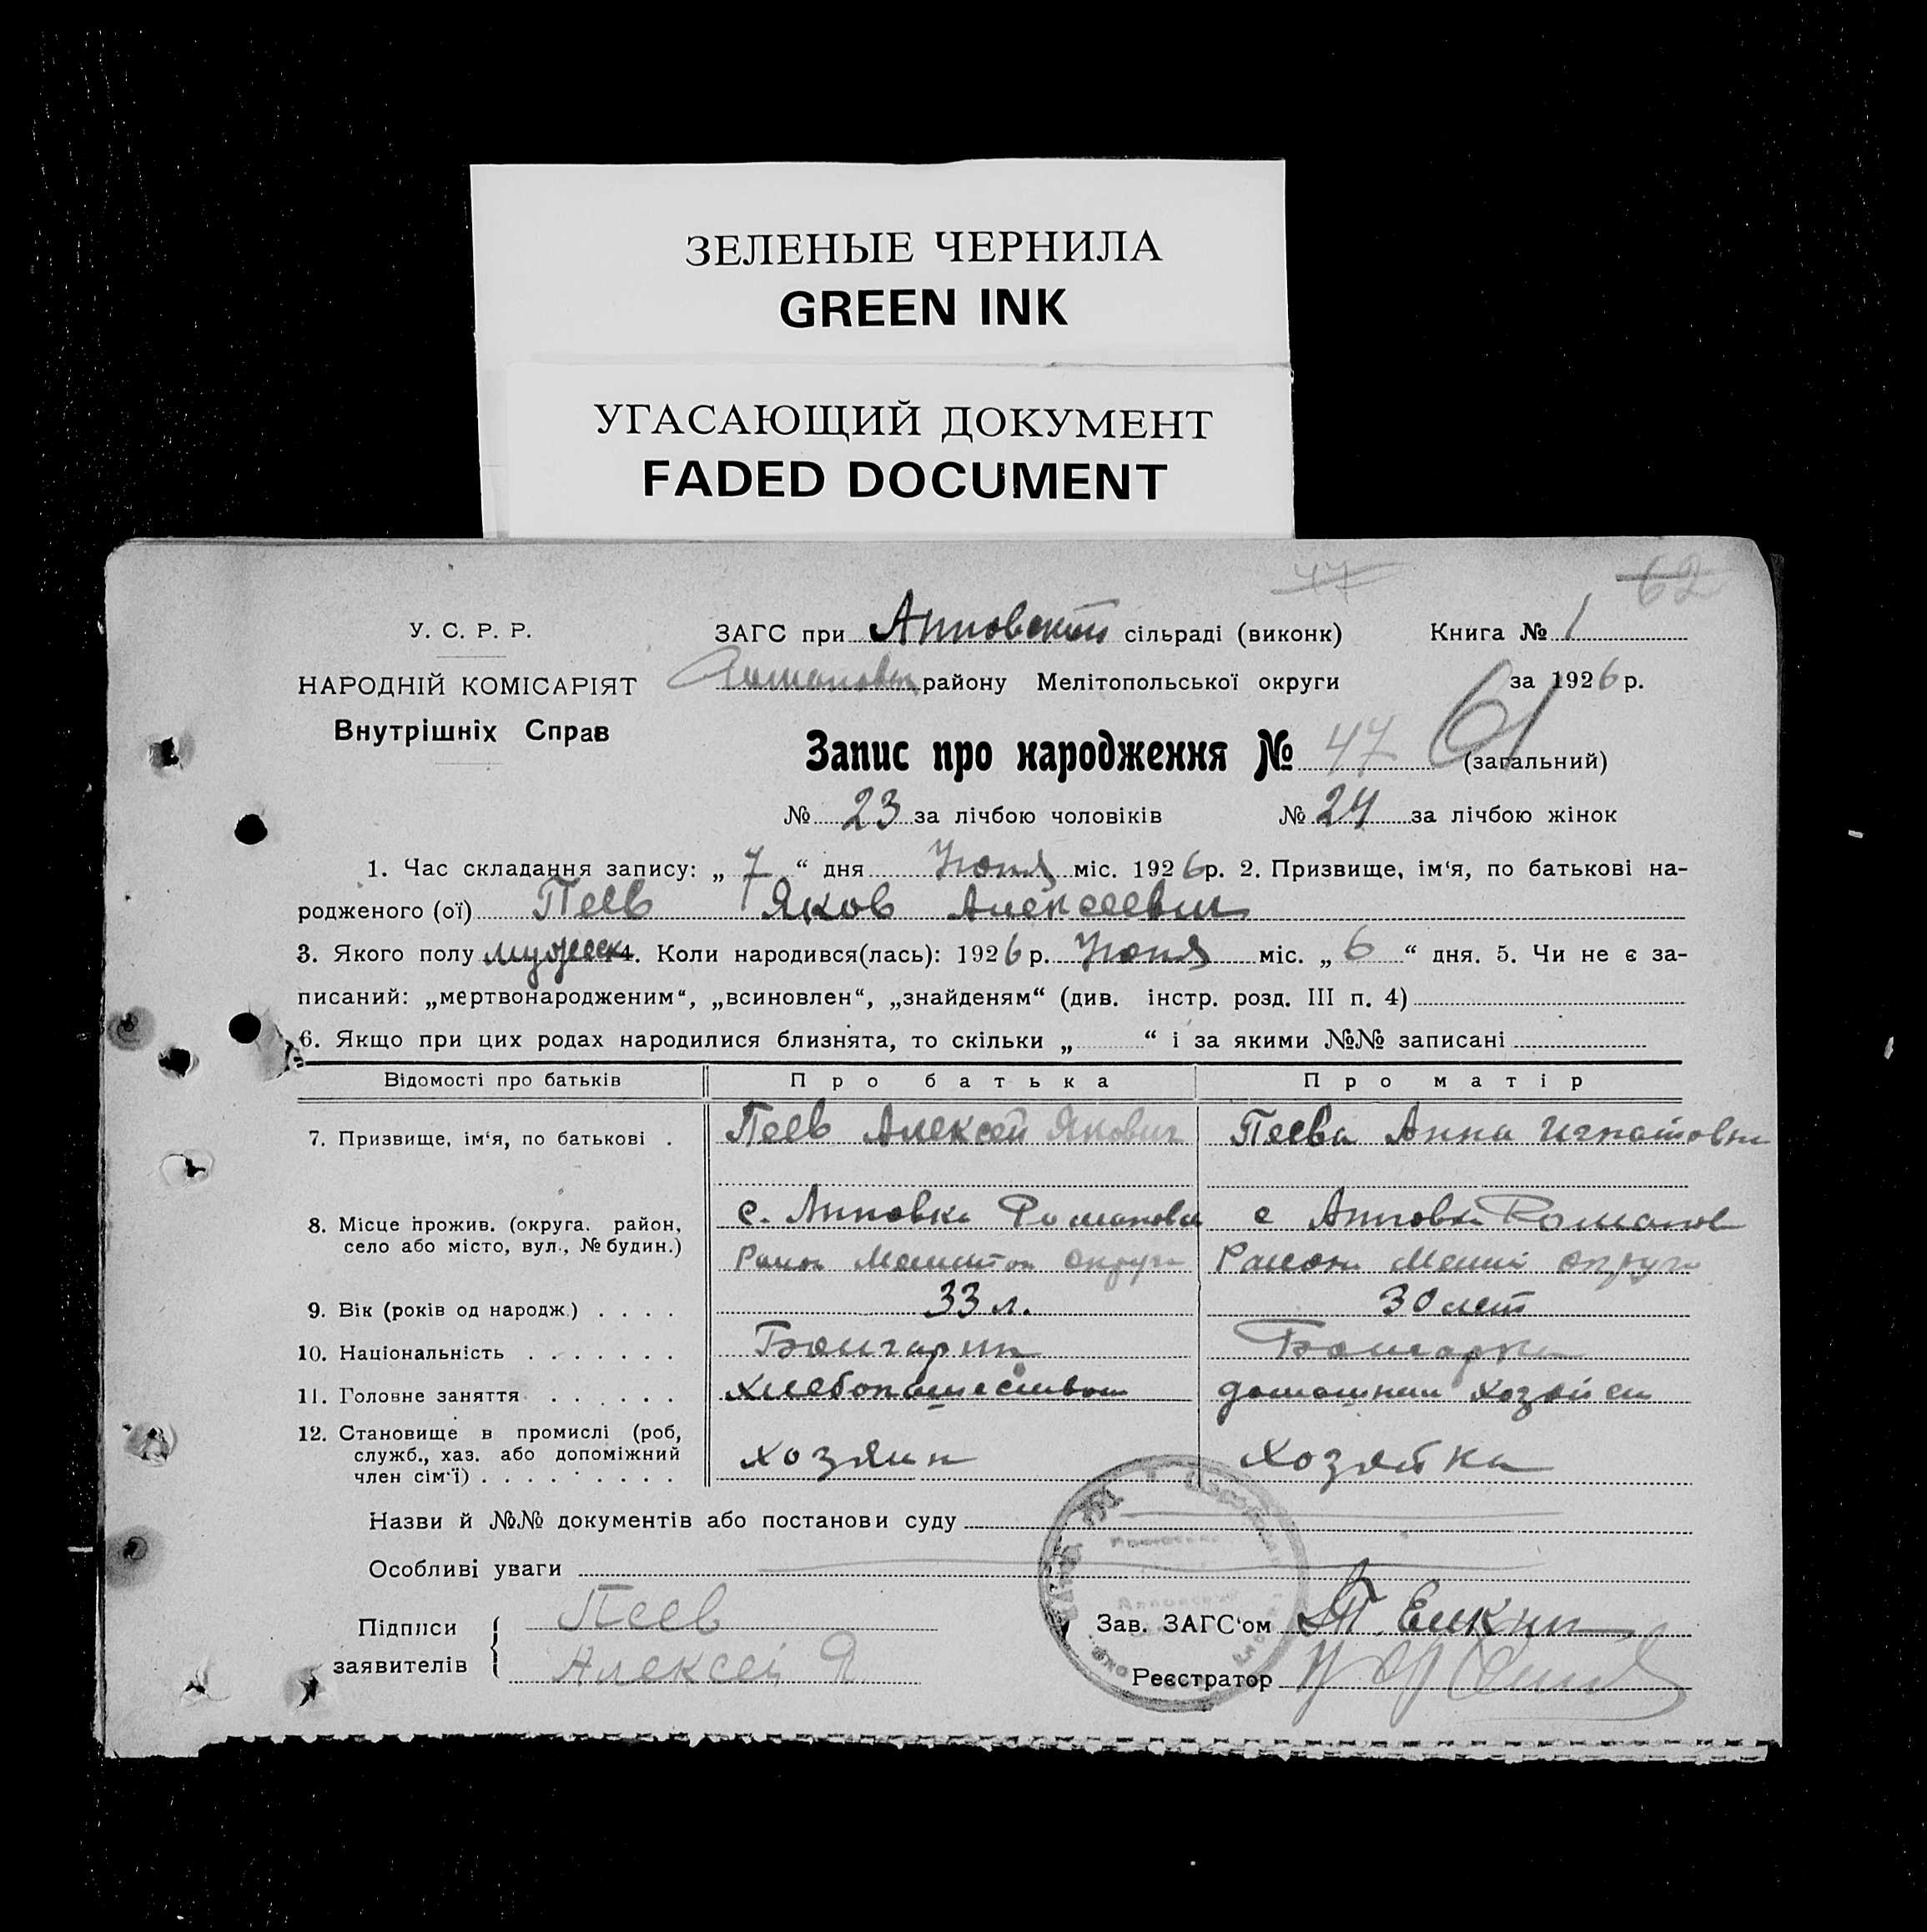 ЗЕЛЕНЫЕ ЧЕРНИЛА
GREEN INK
УГАСАЮЩИЙ ДОКУМЕНТ
FADED DOCUMENT
47 62
У. С. Р. Р. ЗАГС при сільраді (виконк) Книга № 1
НАРОДНІЙ КОМІСАРІЯТ району Мелітопольської округи за 1926 р.
Внутрішніх Справ
Запис про народження № 47 61 (загальний)
№ 23 за лічбою чоловіків № 24 за лічбою жінок
1. Час складання запису: „ 7 “ дня Июня міс. 1926 р. 2. Призвище, ім'я, по батькові на-
родженого (ої) Пеев Яков Алексеевич
3. Якого полу мужеск 4. Коли народився(лась): 1926 р. Июня міс. „ 6 “ дня. 5. Чи не є за-
писаний: „мертвонародженим“, „всиновлен“, „знайденям“ (див. інстр. розд. III п. 4)
6. Якщо при цих родах народилися близнята, то скільки „ “ і за якими №№ записані
Відомості про батьків Про батька Про матір
7. Призвище, ім'я, по батькові . Пеев Алексей Якович Пеева Анна Игнатовна
8. Місце прожив. (округа. район, с. Романовск с Романов
село або місто, вул., № будин.) Район округи Района округи
9. Вік (років од народж.) . . . . 33 л. 30 лет
10. Національність . . . . . . . Болгарин Болгарка
11. Головне заняття . . . . . . Хлебопашеством домашним хозяйст
12. Становище в промислі (роб,
служб., хаз. або допоміжний хозяин хозяйка
член сім'ї) . . . . . . . . .
Назви й №№ документів або постанови суду
Особливі уваги
Підписи Пеев Зав. ЗАГС'ом
заявителів Алексей Я. Реєстратор